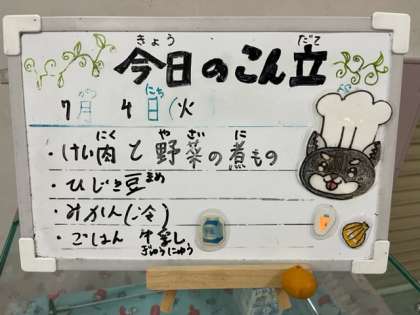 きょう だて
今日のこん立
がつ にち
7月 4日(火
にく や さい に
・けい肉と野菜の煮もの
・ひじき豆 まめ
・みかん(冷)
・ごはん 牛乳
ぎゅうにゅう